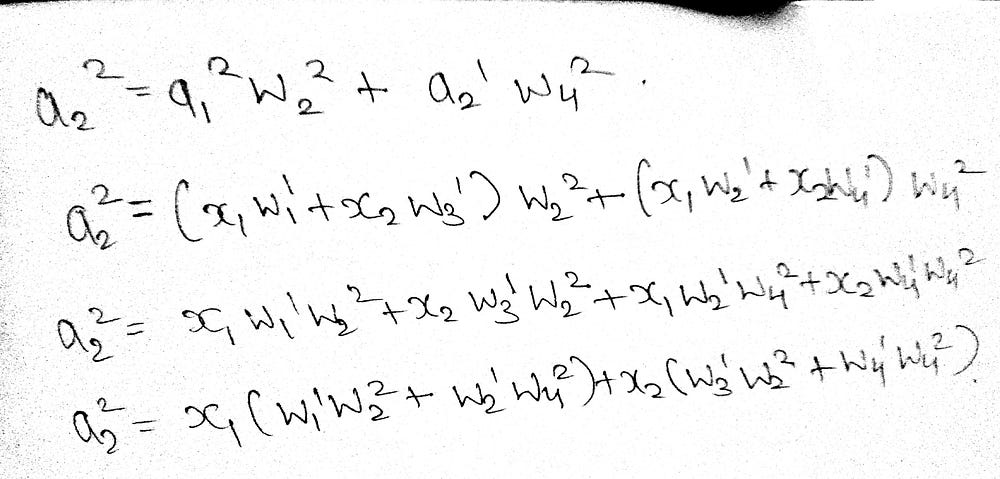 a₂² = a₁² w₂² + a₂¹ w₄² .
a₂² = (x₁ w₁¹ + x₂ w₃¹) w₂² + (x₁ w₂¹ + x₂ w₄¹) w₄²
a₂² = x₁ w₁¹ w₂² + x₂ w₃¹ w₂² + x₁ w₂¹ w₄² + x₂ w₄¹ w₄²
a₂² = x₁ (w₁¹ w₂² + w₂¹ w₄²) + x₂ (w₃¹ w₂² + w₄¹ w₄²).